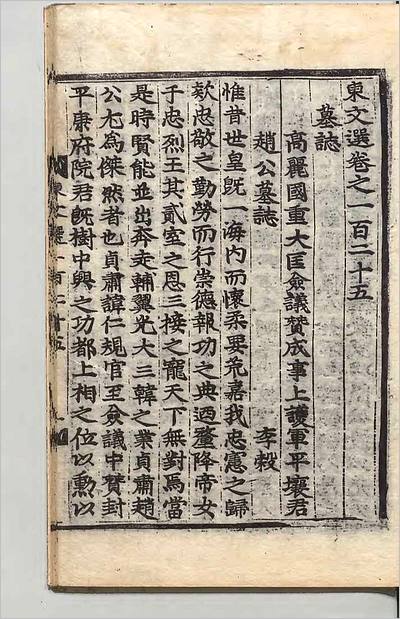 東文選卷之一百二十五
墓誌
高麗國重大匡僉議贊成事上護軍平壤君
趙公墓誌 李穀
惟昔世皇旣一海內而懷柔要荒嘉我忠憲之歸
欵忠敬之勤勞而行崇德報功之典迺釐降帝女
于忠烈王其貳室之恩三接之寵天下無對焉當
是時賢能並出奔走輔翼光大三韓之業貞肅趙
公尤為傑然者也貞肅諱仁規官至僉議中贊封
平康府院君旣樹中興之功都上相之位以勳以
東文選一百二十五 一